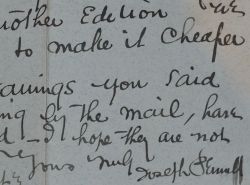 nother Edition
to make it cheaper
awings you said
ng by the mail, have
d - I hope they are not
Yours truly
Joseph